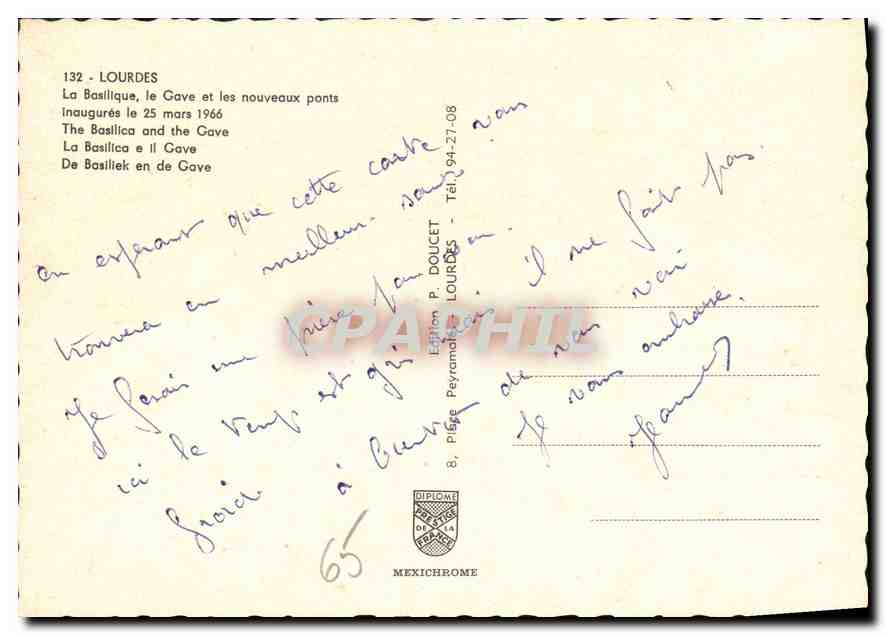 132 - LOURDES
La Basilique, le Gave et les nouveaux ponts
inaugurés le 25 mars 1966
The Basilica and the Gave
La Basilica e il Gave
De Basiliek en de Gave
en esperant que cette carte vous
trouvera en meilleur santé.
Je ferais une prière pour vous.
ici le temps est gris mais il ne fait pas
froid à bientot de vous voir
Je vous embrasse.
8, Place Peyramale - LOURDES - Tél. 94-27-08
Edition P. DOUCET
CPAPHIL
DIPLOME
PRESTIGE
DE LA
FRANCE
MEXICHROME
65